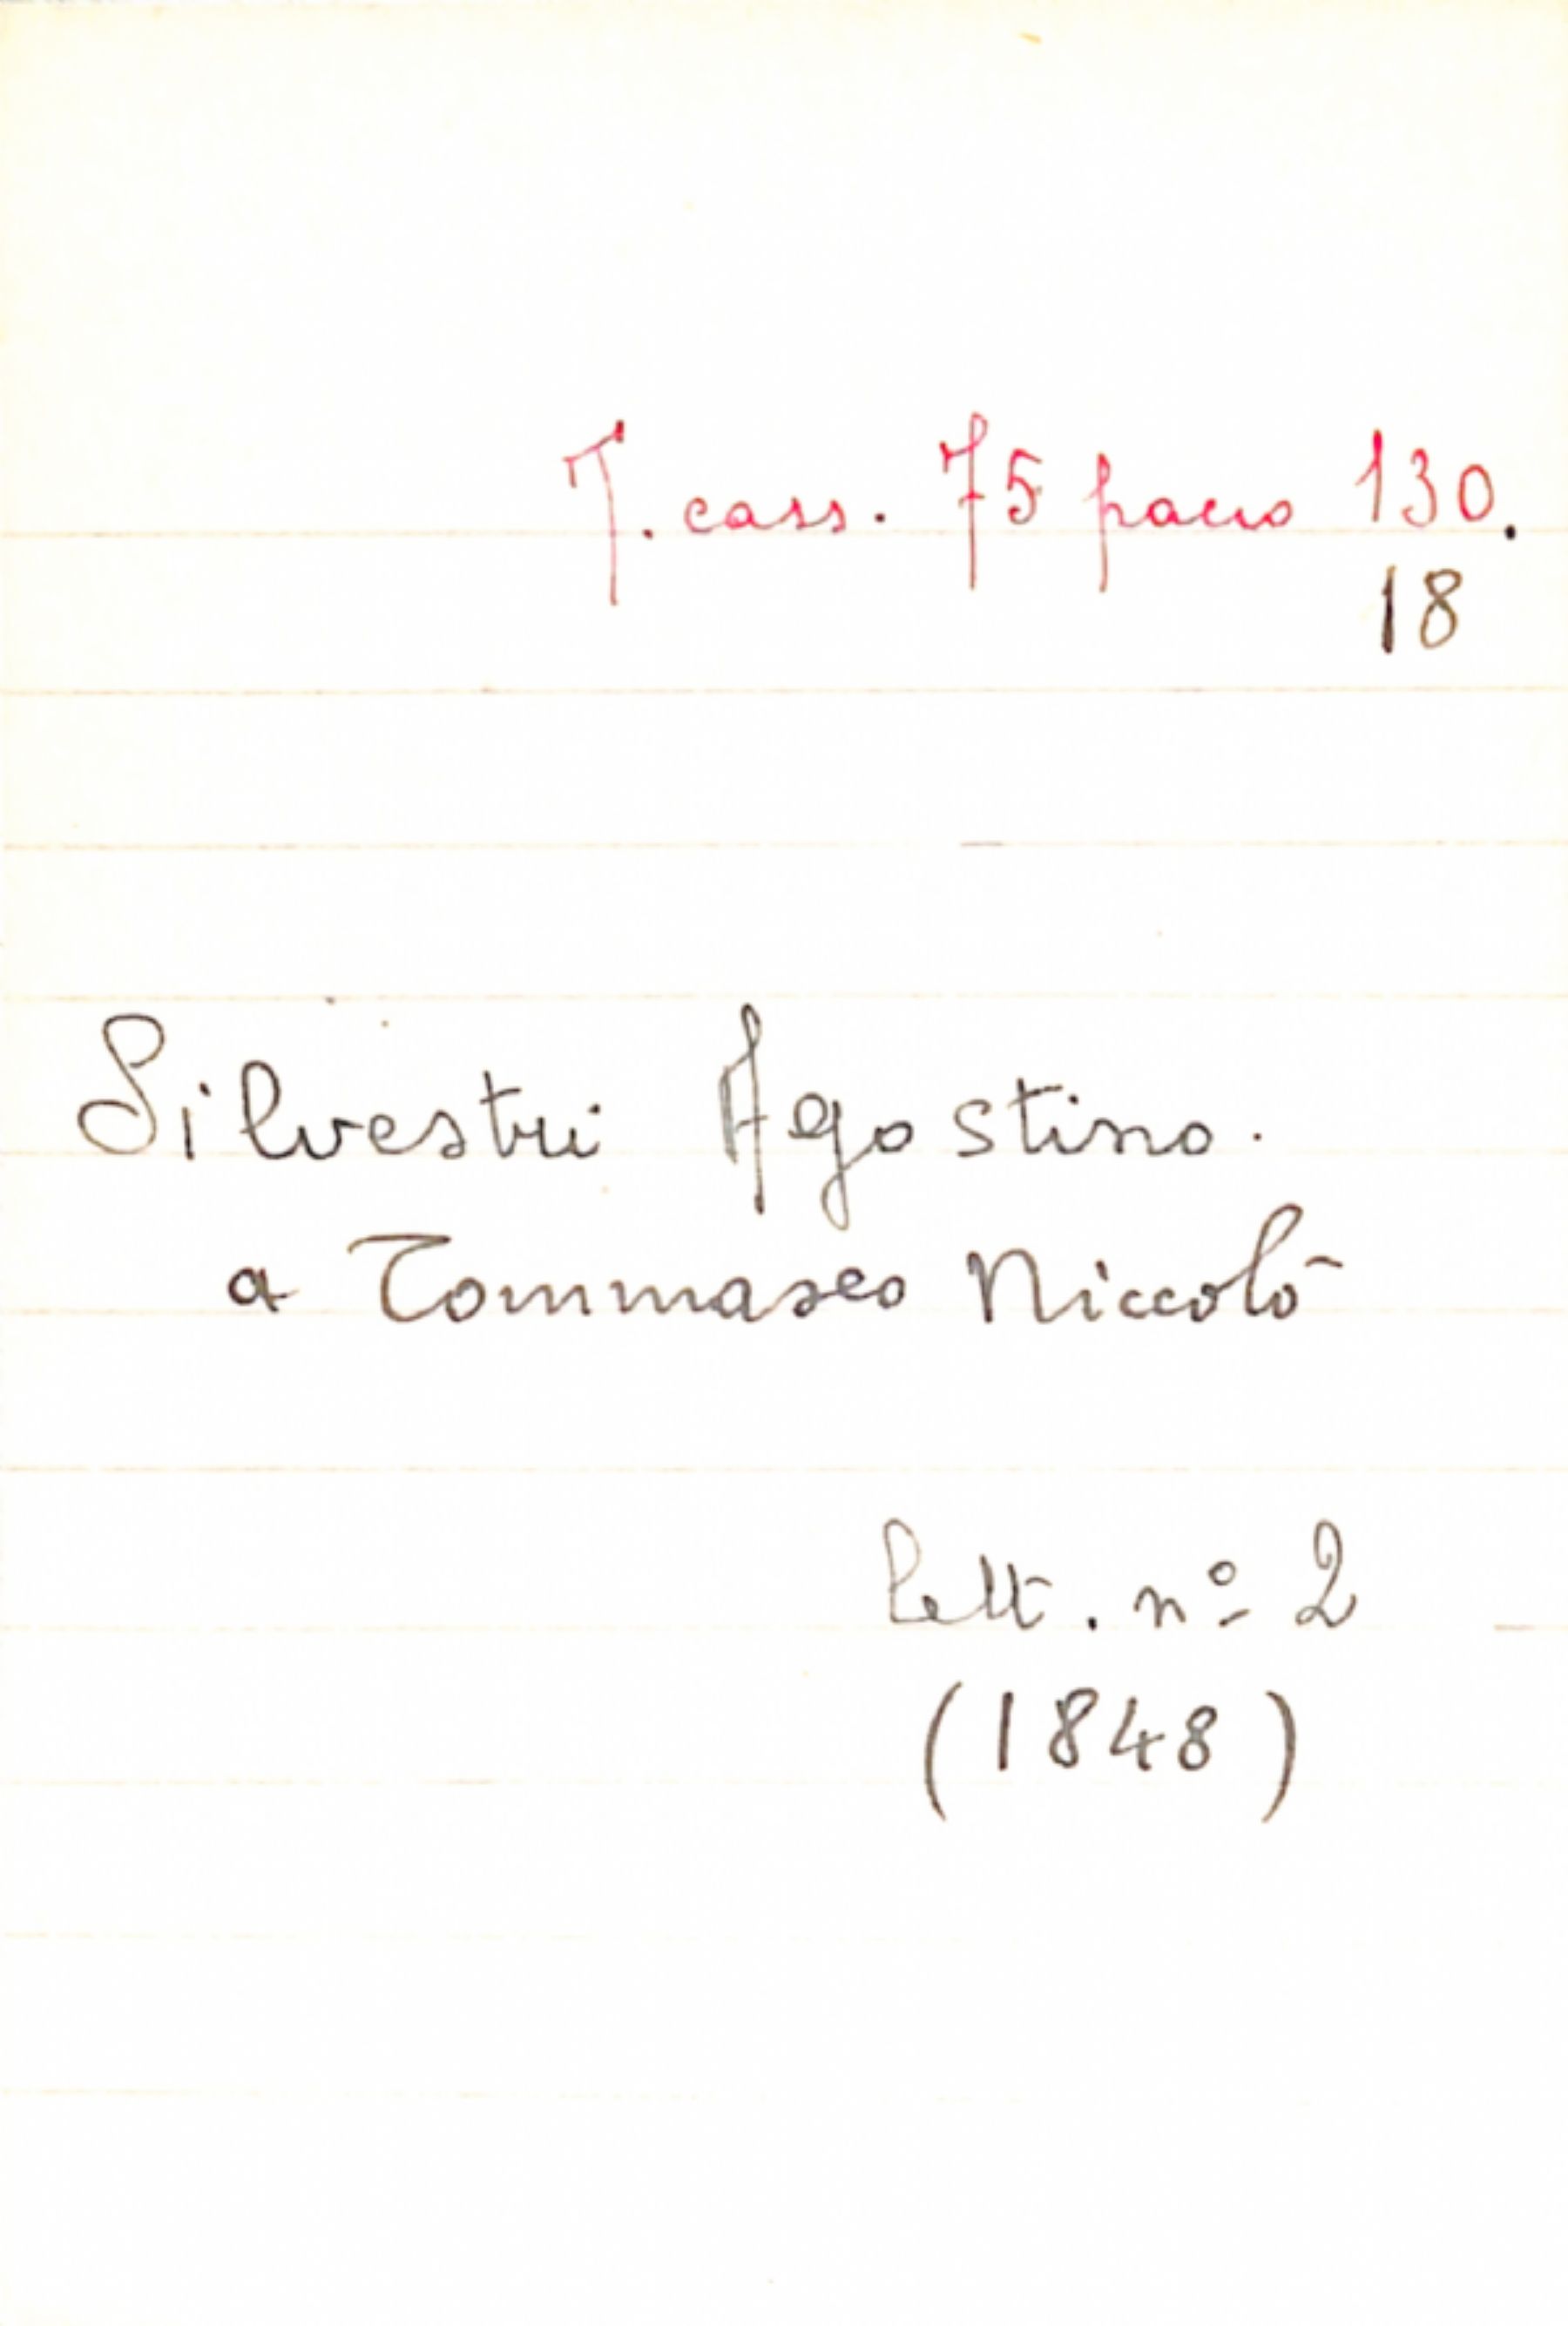 T. cass. 75 pacco 130.
18
Silvestri Agostino.
a Tommaseo Niccolò
lett. nº 2
(1848)